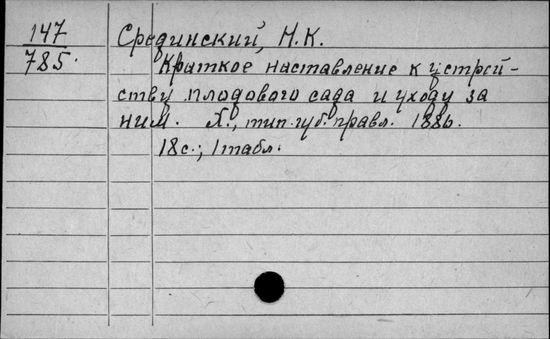 147
785.
Срединский, Н.К.
Краткое наставление к устрой-
ству плодового сада и уходу за
ним. Х., тип. губ. правл. 1886.
18с.; 1табл.